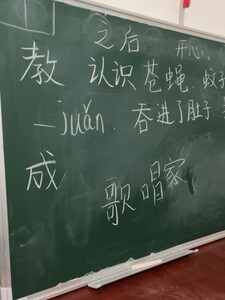 之后 开心
教 认识 苍蝇. 蚊子
一juǎn. 吞进了肚子.
成
歌唱家